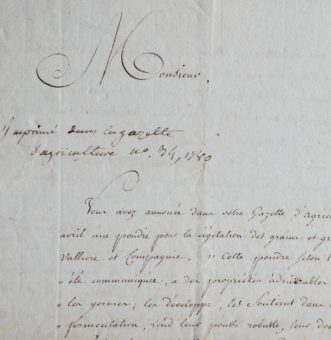 Monsieur.
Imprimé dans la gazette
d'agriculture no. 34, 1780
Vous avez annoncé dans votre Gazette d'Agric
avril une poudre pour la végétation des grains et gr
Vallière et Compagnie. " Cette poudre selon l
" été communiquée, a des propriétés admirables
" les germes, les développe, les Soutient dans
" fermentation, rend leur pousse robuste, leur don